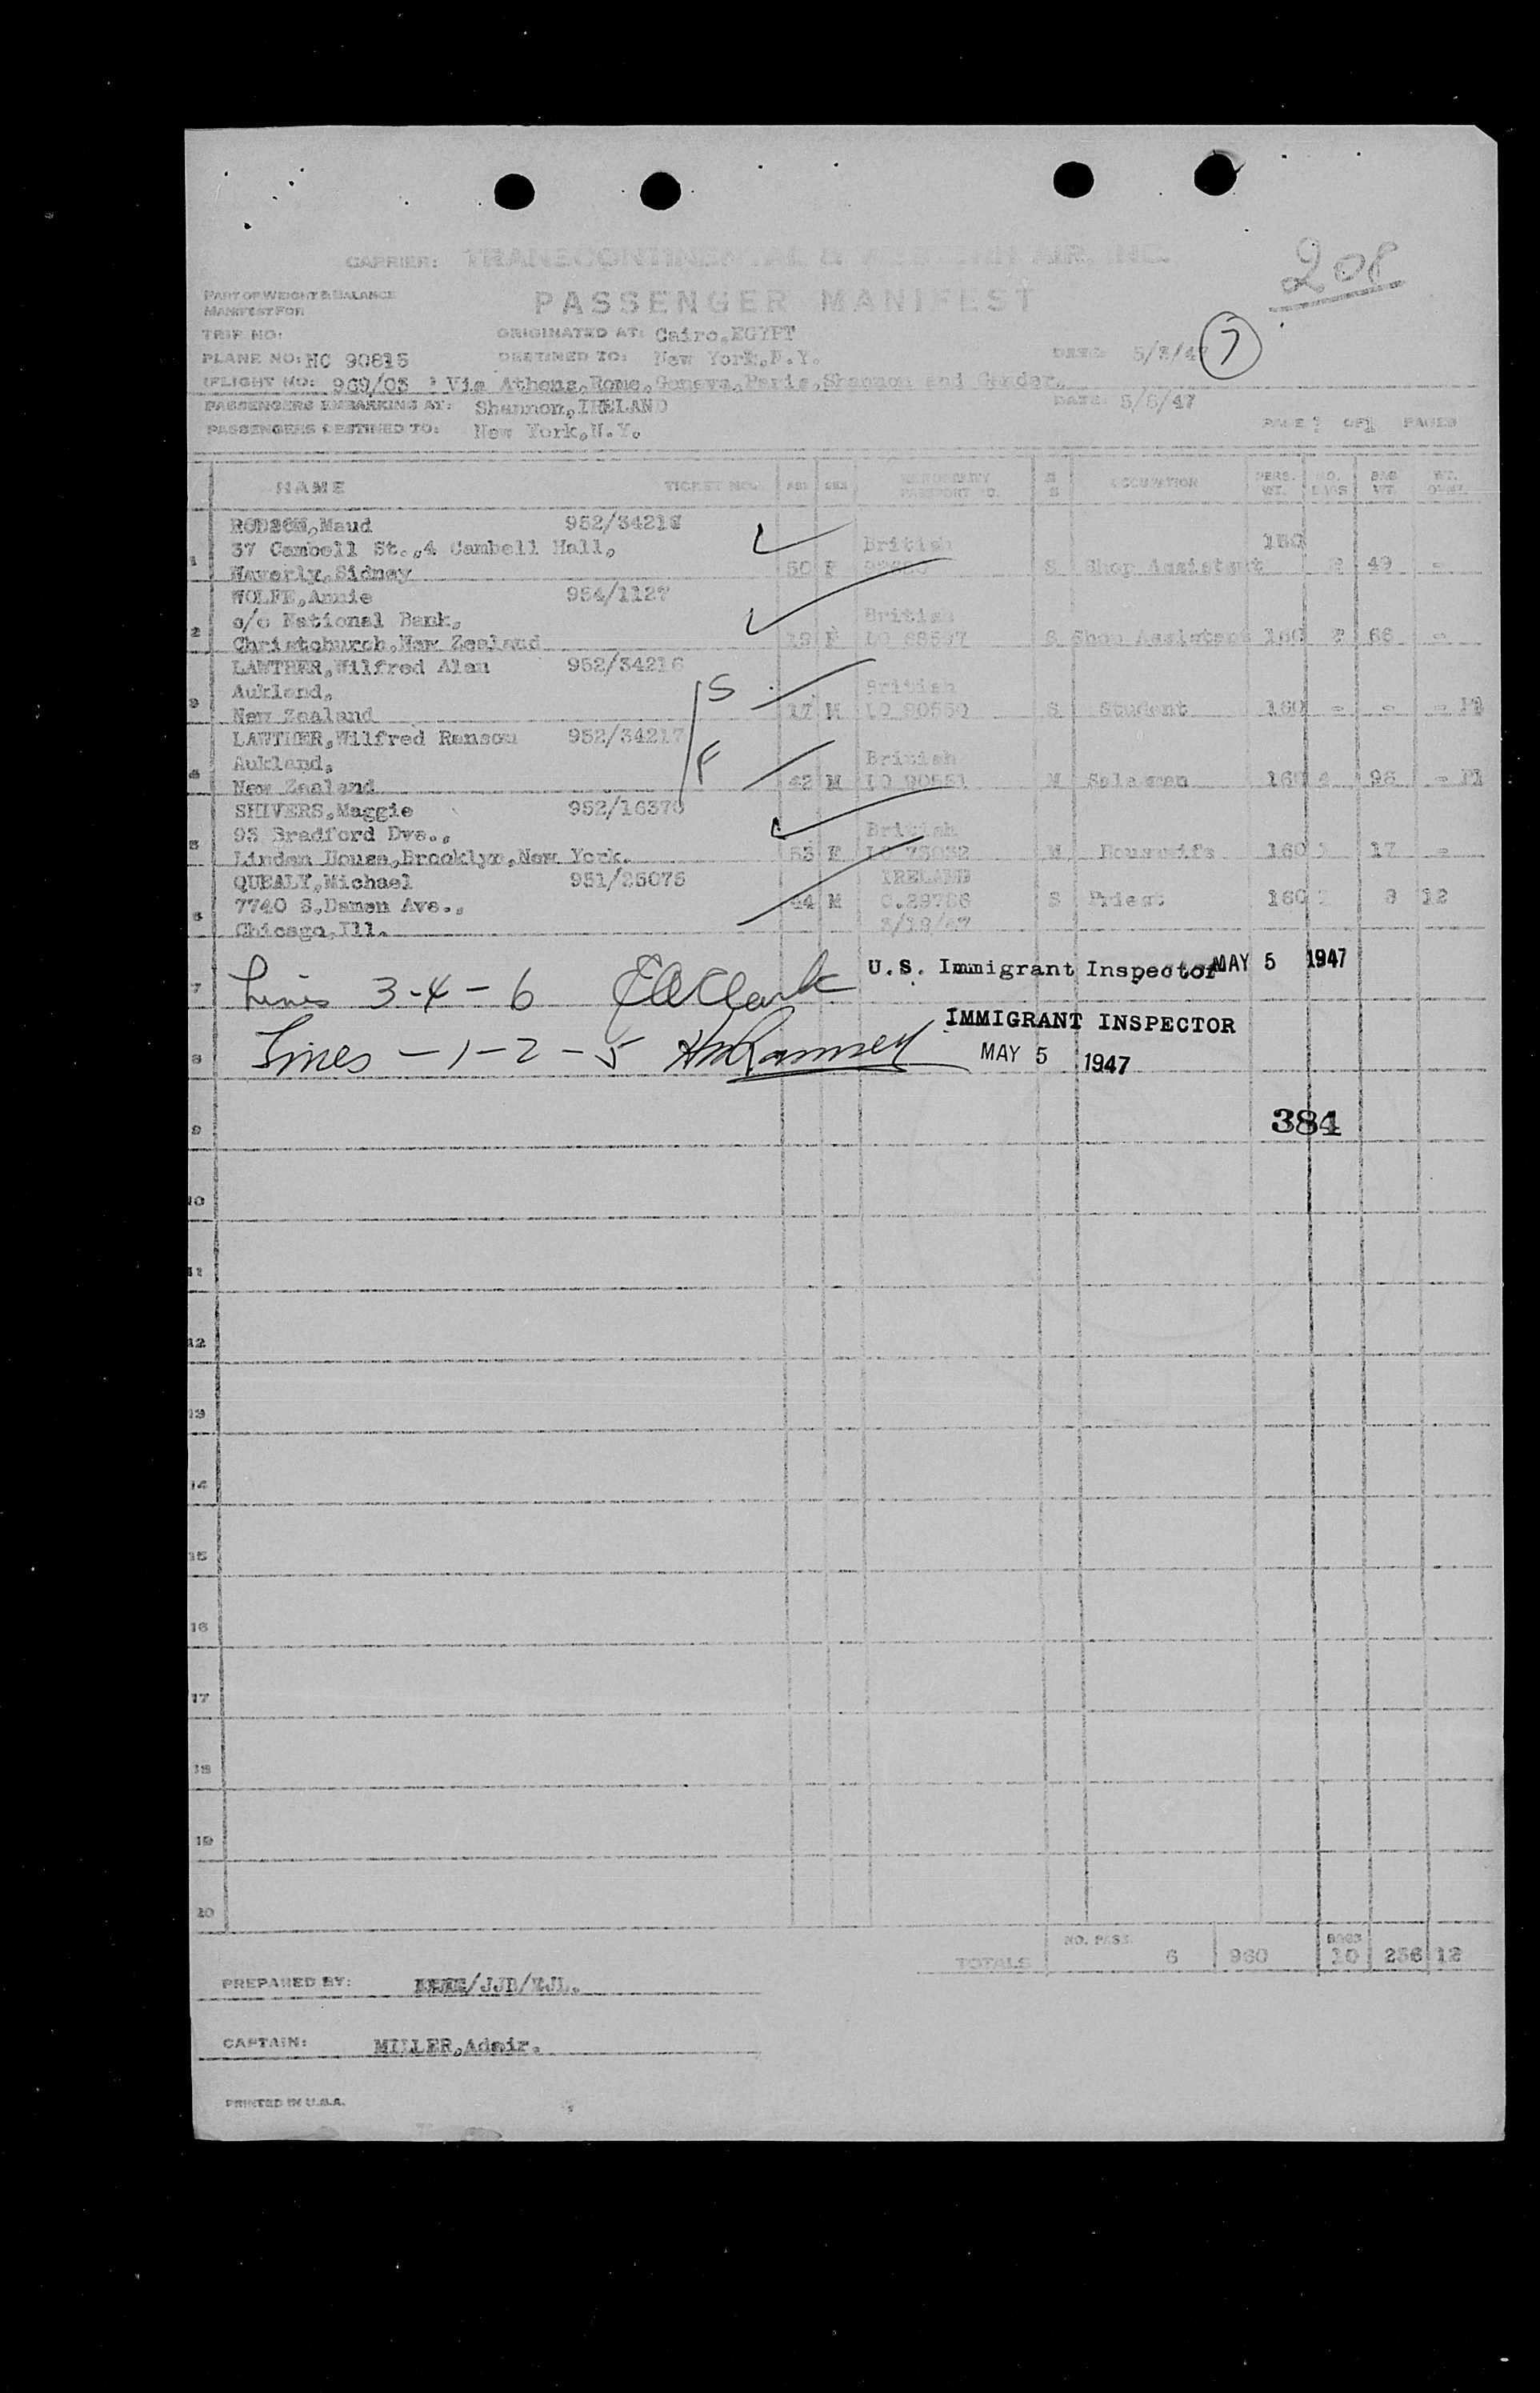 CARRIER: TRANSCONTINENTAL & WESTERN AIR, INC.
208
PART OF WEIGHT & BALANCE
MANIFEST FOR
PASSENGER MANIFEST
TRIP NO:
ORIGINATED AT: Cairo,EGYPT
PLANE NO: NC 90815
DESTINED TO: New York,N.Y.
DATE: 5/3/47
7
(FLIGHT NO: 969/03 : Via Athens,Rome,Geneva,Paris,Shannon and Gander.
PASSENGERS EMBARKING AT: Shannon,IRELAND
DATE: 5/5/47
PASSENGERS DESTINED TO: New York,N.Y.
PAGE OF 1 PAGES
NAME TICKET NO. AGE SEX NATIONALITY PASSPORT NO. M S OCCUPATION PERS. WT. NO. BAGS BAG WT.
Maud 952/3421
37 Cambell St.,4 Cambell Hall, British 160
1 Waverly,Sidney 50 F S Shop Assistant 2 49 -
WOLFE,Annie 954/1127
c/o National Bank, British
2 Christchurch,New Zealand 19 F S Shop Assistant 160 2 66 -
LAWTHER,Wilfred Alan 952/34216
Aukland, S British
3 New Zealand 17 M LO 90550 S Student 160 - - -
LAWTHER,Wilfred Ransom 952/34217
Aukland, F British
4 New Zealand 42 M LO 90551 M Salesman 160 96 -
SHIVERS,Maggie 952/16376
95 Bradford Dve., British
5 Linden House,Brooklyn,New York. 53 F M Housewife 160 1 17 -
QUEALY,Michael 951/25075 IRELAND
7740 S.Damen Ave., 44 M S Priest 160 8 12
6 Chicago,Ill. 3/19/47
7 Lines 3-4-6 E A Clark U.S. Immigrant Inspector MAY 5 1947
IMMIGRANT INSPECTOR
8 Lines -1-2-5 MAY 5 1947
9 384
10
11
12
13
14
15
16
17
18
19
20
TOTALS NO. PASS. 6 960 BAGS 10 236 12
PREPARED BY: /JJD/
CAPTAIN: MILLER,Admir.
PRINTED IN U.S.A.